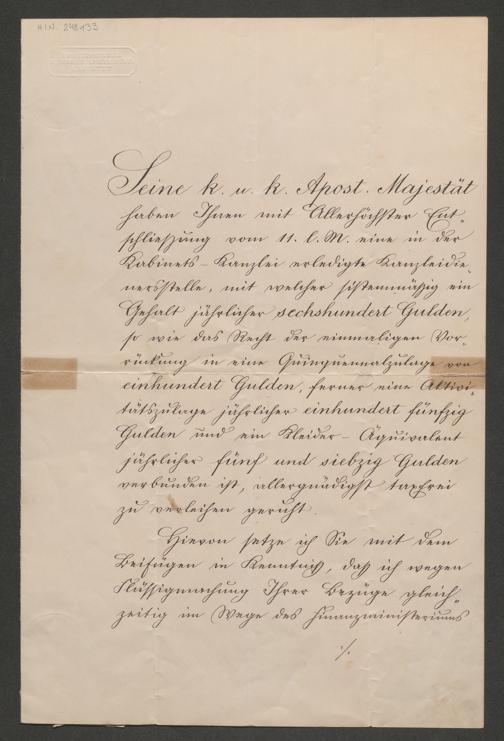 HIN. 248133
Seine k. u. k. Apost. Majestät
haben Ihnen mit Allerhöchster Ent-
schließung vom 11. l. M. eine in der
Kabinets-Kanzlei erledigte Kanzleidie-
nersstelle, mit welcher sistemmäßig ein
Gehalt jährlicher sechshundert Gulden,
so wie das Recht der einmaligen Vor-
rückung in eine Quinquennalzulage von
einhundert Gulden, ferner eine Aktivi-
tätszulage jährlicher einhundert fünfzig
Gulden und ein Kleider-Äquivalent
jährlicher fünf und siebzig Gulden
verbunden ist, allergnädigst taxfrei
zu verleihen geruht.
Hievon setze ich Sie mit dem
Beifügen in Kenntniß, daß ich wegen
Flüssigmachung Ihrer Bezüge gleich-
zeitig im Wege des Finanzministeriums
./.